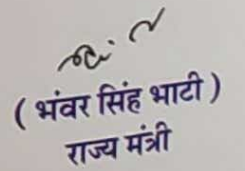 ( भंवर सिंह भाटी )
राज्य मंत्री